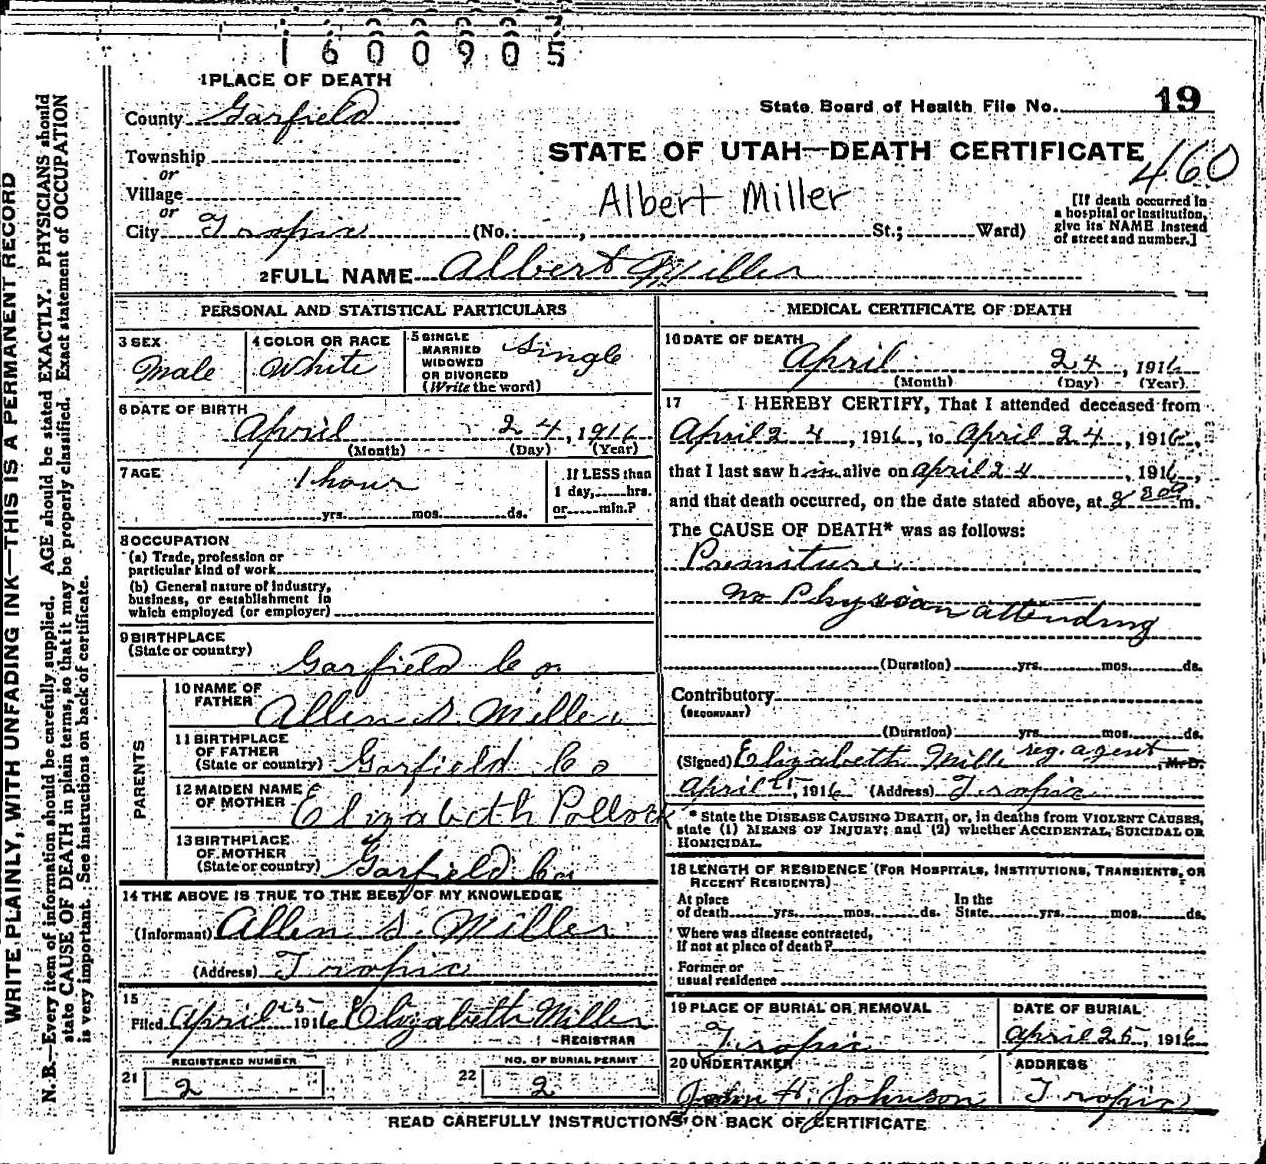 1600905
1 PLACE OF DEATH
County Garfield
State Board of Health File No. 19
Township
or
STATE OF UTAH—DEATH CERTIFICATE
460
Village
or
Albert Miller
[If death occurred in
a hospital or institution,
give its NAME instead
of street and number.]
City Tropic (No. , St.; Ward)
2 FULL NAME Albert Miller
PERSONAL AND STATISTICAL PARTICULARS
3 SEX
Male
4 COLOR OR RACE
White
5 SINGLE
MARRIED
WIDOWED
OR DIVORCED
(Write the word)
Single
6 DATE OF BIRTH
April 24, 1916
(Month) (Day) (Year)
7 AGE
1 hour
yrs. mos. ds.
If LESS than
1 day, hrs.
or min.?
8 OCCUPATION
(a) Trade, profession or
particular kind of work
(b) General nature of industry,
business, or establishment in
which employed (or employer)
9 BIRTHPLACE
(State or country)
Garfield Co.
PARENTS
10 NAME OF
FATHER
Allen S. Miller
11 BIRTHPLACE
OF FATHER
(State or country) Garfield Co
12 MAIDEN NAME
OF MOTHER
Elizabeth Pollock
13 BIRTHPLACE
OF MOTHER
(State or country) Garfield Co
14 THE ABOVE IS TRUE TO THE BEST OF MY KNOWLEDGE
(Informant) Allen S. Miller
(Address) Tropic
15
Filed April 25 1916 Elizabeth Miller
REGISTRAR
REGISTERED NUMBER
21 2
NO. OF BURIAL PERMIT
22 2
MEDICAL CERTIFICATE OF DEATH
16 DATE OF DEATH
April 24, 1916
(Month) (Day) (Year)
17 I HEREBY CERTIFY, That I attended deceased from
April 24, 1916, to April 24, 1916,
that I last saw him alive on April 24, 1916,
and that death occurred, on the date stated above, at m.
The CAUSE OF DEATH* was as follows:
Premiture
no Physician attending
(Duration) yrs. mos. ds.
Contributory
(SECONDARY)
(Duration) yrs. mos. ds.
(Signed) Elizabeth Mille reg. agent M. D.
April 25, 1916 (Address) Tropic
* State the DISEASE CAUSING DEATH, or, in deaths from VIOLENT CAUSES,
state (1) MEANS OF INJURY; and (2) whether ACCIDENTAL, SUICIDAL OR
HOMICIDAL.
18 LENGTH OF RESIDENCE (FOR HOSPITALS, INSTITUTIONS, TRANSIENTS, OR
RECENT RESIDENTS)
At place
of death yrs. mos. ds.
In the
State yrs. mos. ds.
Where was disease contracted,
if not at place of death?
Former or
usual residence
19 PLACE OF BURIAL OR REMOVAL
Tropic
DATE OF BURIAL
April 25, 1916
20 UNDERTAKER
John H. Johnson
ADDRESS
Tropic
READ CAREFULLY INSTRUCTIONS ON BACK OF CERTIFICATE
WRITE PLAINLY, WITH UNFADING INK—THIS IS A PERMANENT RECORD
N. B.—Every item of information should be carefully supplied. AGE should be stated EXACTLY. PHYSICIANS should
state CAUSE OF DEATH in plain terms, so that it may be properly classified. Exact statement of OCCUPATION
is very important. See instructions on back of certificate.